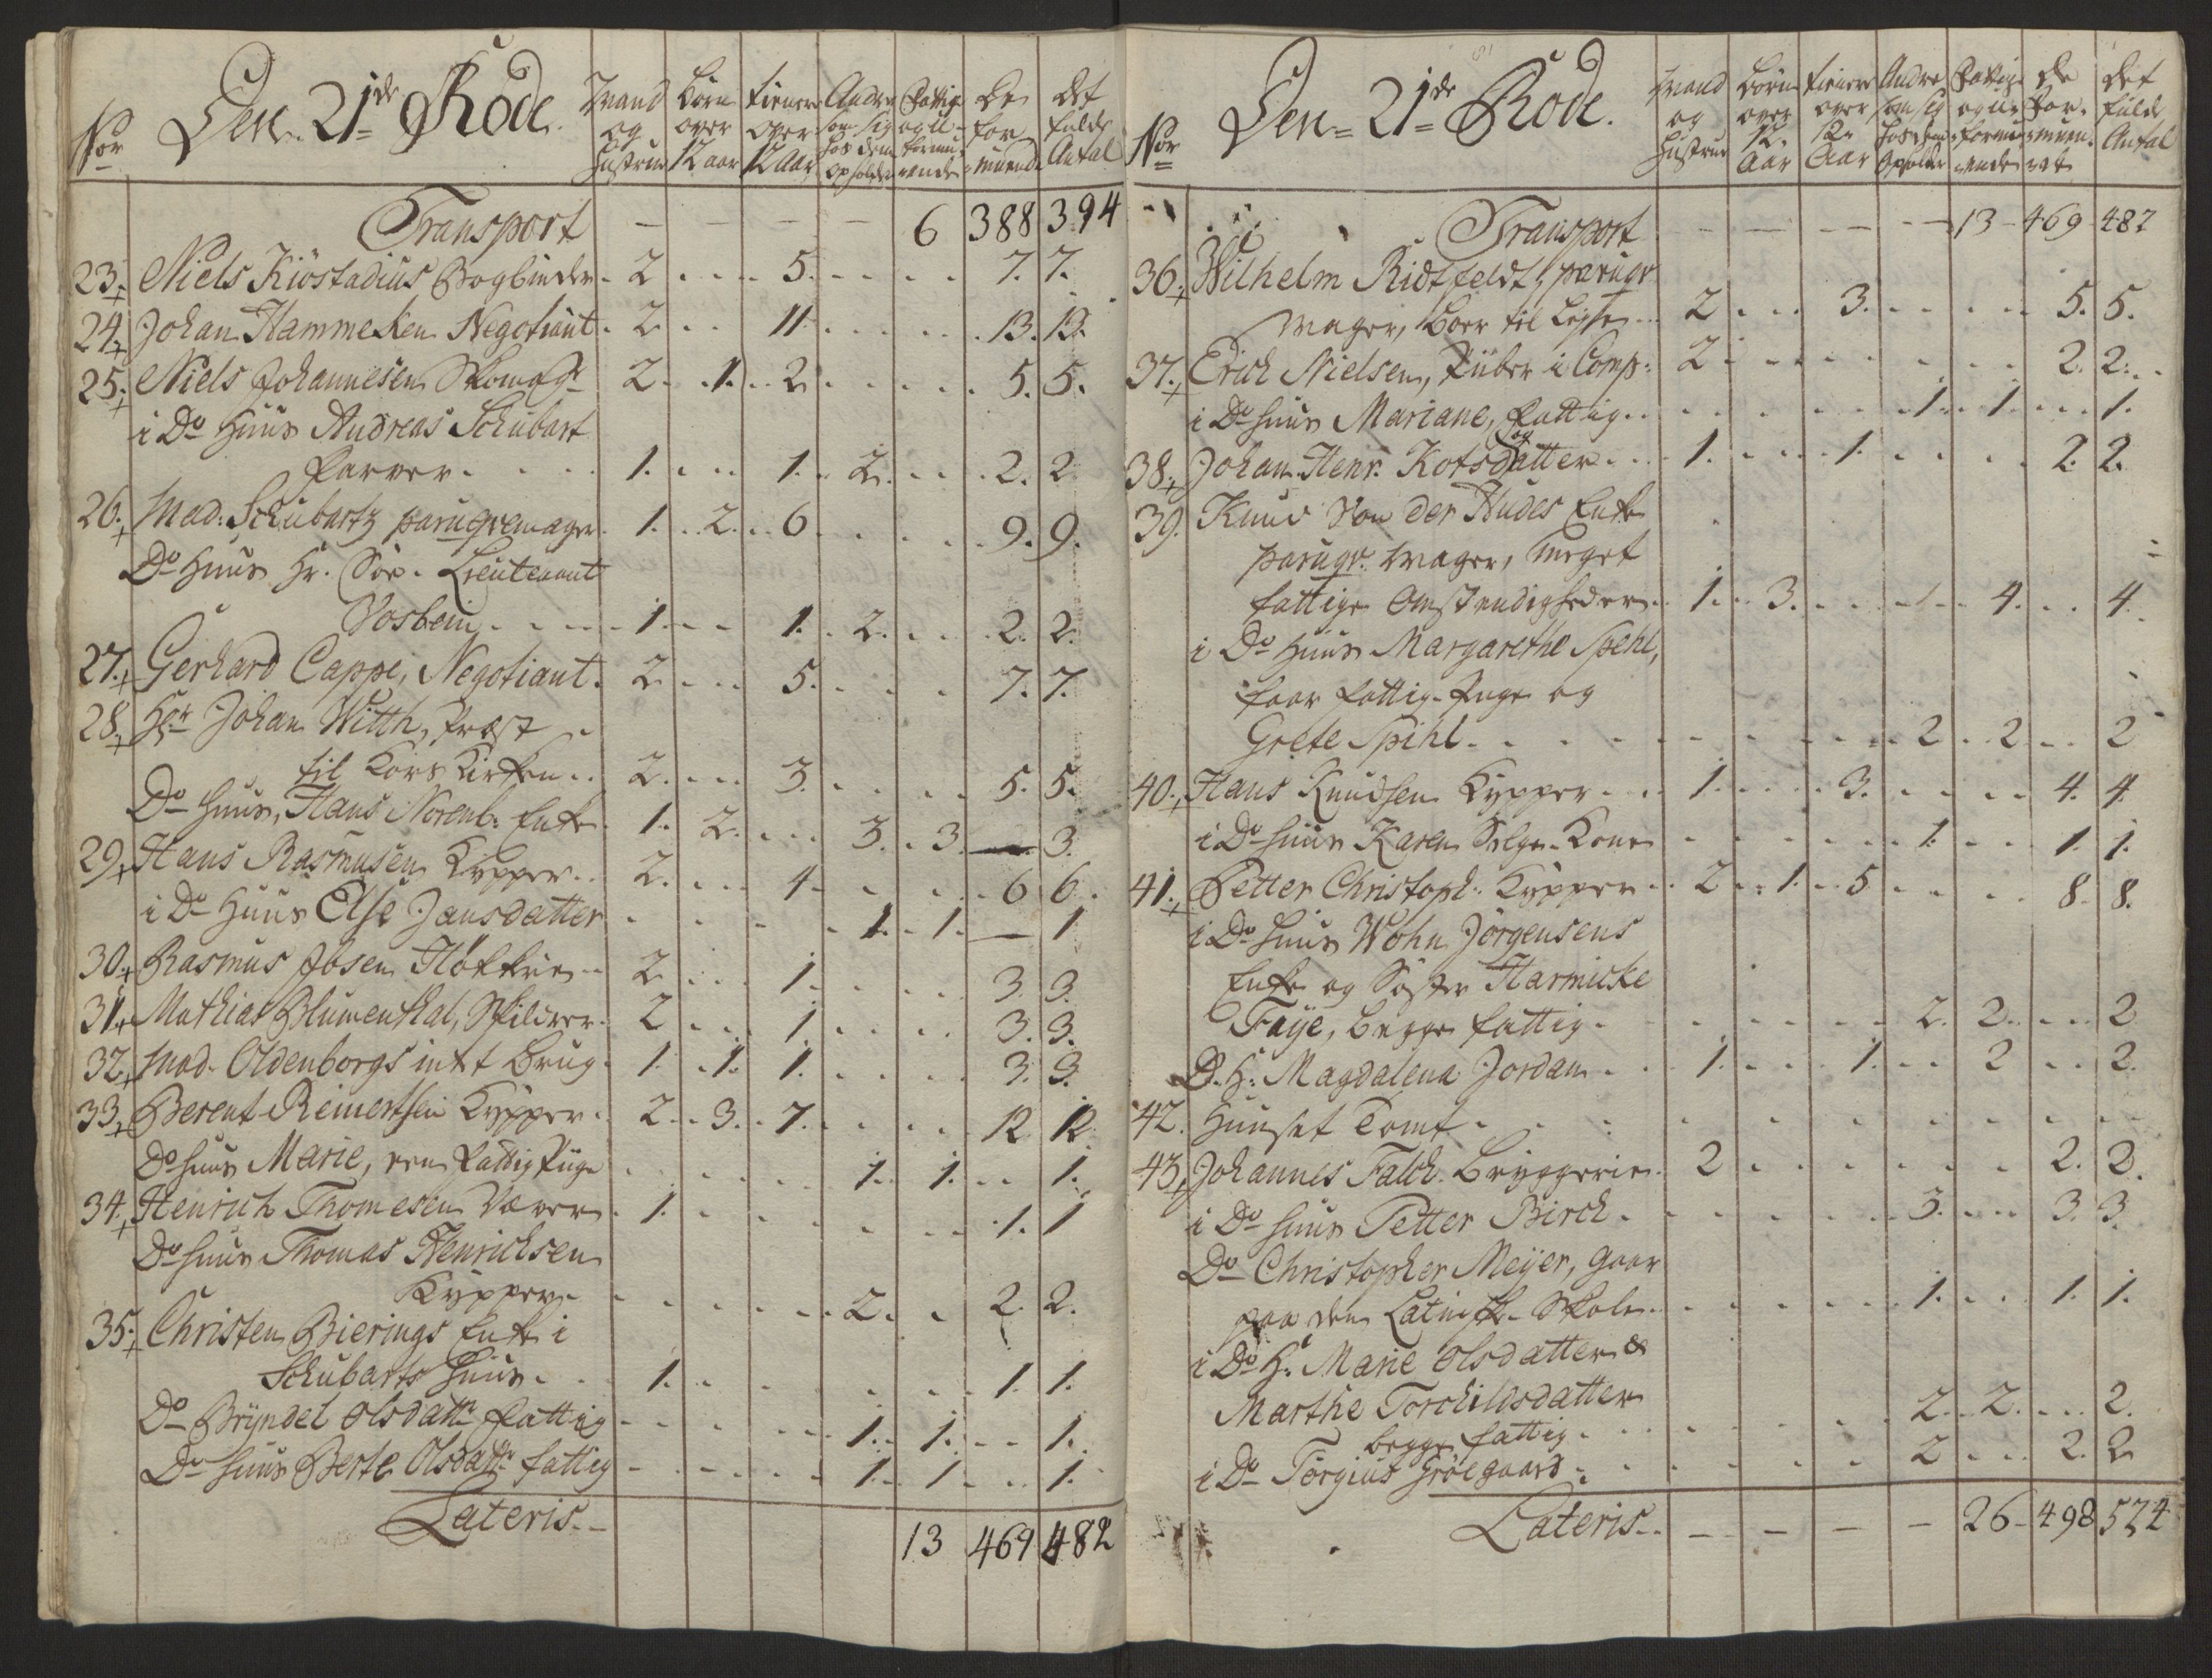 Nor Den 21de Rode. Mand og Hustrue | Börn over 12 aar | tienere over 12 Aar | Andre som sig hos dem opholder | Fattige og u-formuende | De formuende | det fulde Antal
Transport — — — — 6 388 394
23. Niels Kiöstadius Bogbinder. 2 . . . 5. . . . . 7. 7.
24. Johan Hammeken Negotiant. 2 . . 11. . . . . 13. 13.
25. Niels Johannesen Skomagr 2. . 1. . 2 . . . . 5. 5.
i Do Huus Andreas Schubart
Farver. . . . 1. . . . 1. . 2. . . . 2. 2
26. Mad: Schubartz paruqvemager. 1. . 2. . 6 . . . . 9. 9.
Do Huus Hr. Söe-Lieutenant
Vosbein. . . . 1. . . 1. . 2. . . . 2. 2.
27. Gerhard Cappe, Negotiant. 2 . . . 5. . . . 7. 7.
28. Hr Johan Witth, Præst
til Kors Kirken. . 2. . . . 3. . . . . 5. 5.
Do Huus, Hans Norenb. Enke. 1. 2. . . . 3. . 3. — 3.
29. Hans Rasmusen Kypper. . 2. . . . 4 . . . . 6 6.
i Do Huus Else Jansdatter . . . . 1. . 1. — 1
30. Rasmus Ibsen Høkker . . 2 . . . 1 . . . . 3. 3.
31. Mathias Blumenthal, Skildrer. 2 . . . 1 . . . . 3. 3.
32. Mad. Oldenborgs intet Brug. 1. . 1. 1. . . . . 3. 3.
33. Berent Reinertsen Kypper. 2. . 3. . 7. . . . . 12 12.
Do Huus Marie, een Fattig Pige . . . . 1. . 1. . . 1.
34. Henrich Thomesen Væver. 1. . . . . . . 1. 1
Do Huus Thomas Henrichsen
Kypper. . . . . . 2. . 2. 2.
35. Christen Bierings Enke i
Schubarts Huus. . . 1. . . . . . 1. 1.
Do Bryndel Olsdattr Fattig . . . . 1. . 1. . . 1.
Do Huus Berte Olsdattr fattig . . . . 1. . 1 . . . 1.
Lateris. 13 469 482
Nor Den 21de Rode. Mand og Hustrue | Börn over 12 Aar | tienere over 12 Aar | Andre som sig hos dem Opholder | Fattige og u-formuende | De Formuende | det fulde Antal
Transport — — — — 13 469 482
36. Wilhelm Ridtfeldt, paruqv
mager, boer til Leje. . 2 . . . 3. . . . . 5. 5.
37. Erich Nielsen, Piiber i Comp: 2 . . . . . . . 2. 2. . .
i Do Huus Mariane, Fattig. . . . . . . 1. . 1. . . . 1.
38. Johan Henr. Kots og datter. . . 1. . . . 1. . . . . 2. 2.
39. Knud Von der Hudes Enke
paruqv. mager, meget
fattige Omstendigheder. 1. . 3. . . . . . . 4. . . 4.
i Do Huus Margarethe Spehl,
faar Fattig-Penge og
Grete Spihl. . . . . . . . . 2 . 2 . . . 2
40. Hans Knudsen Kypper . . . 1. . . . 3. . . . . 4. 4.
i Do Huus Karen Selge-Kone . . . . . 1. . . . 1. 1.
41. Petter Christoph. Kypper. . 2 . . 1. . 5 . . . . 8. 8.
i Do Huus Wohn Jörgensens
Enke og Söster Harmicke
Faye, begge fattig. . . . . . 2. 2. . . . 2
D. H. Magdalena Jordan . . . 1. . . . 1. . . 2 . . 2.
42. Huuset Tomt . . . . . . . .
43. Johannes Falch Bryggerie. 2 . . . . . . . 2. 2.
i Do Huus Petter Birch. . . . . . 3. . . . 3. 3.
Do Christopher Meyer, gaar
paa den Latinsk-Skole. . . . . . 1. . . . 1. 1.
i Do H. Marie Olsdatter &
Marthe Torchildsdatter
begge fattig. . . . . . 2. . 2. . . . 2.
i Do Törgius Gröegaard. . . . . . 2 . . . 2. 2
Lateris. . — — — — 26 498 524